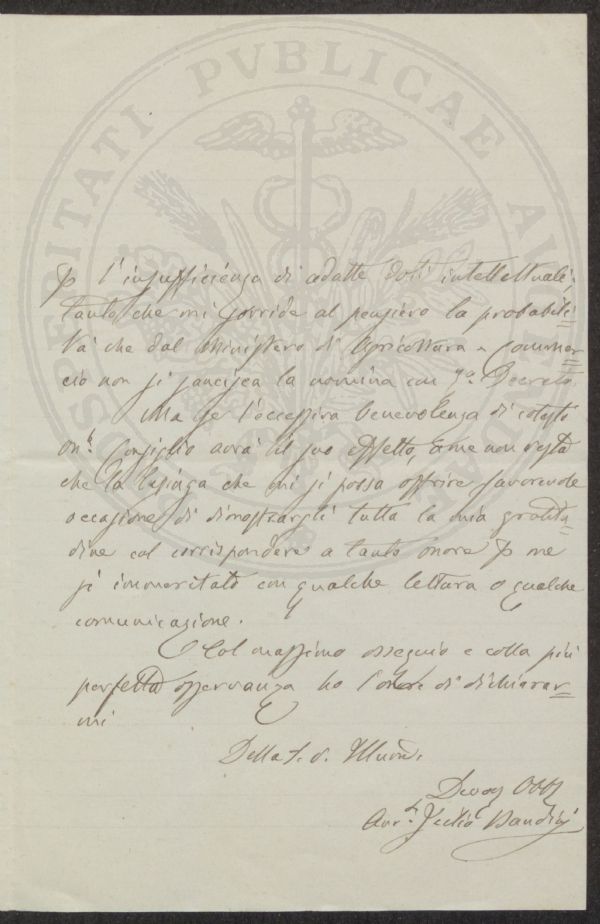 PROSPERITATI PVBLICAE AVGENDAE
p l'insufficienza di adatte doti intellettuali;
tanto che mi sorride al pensiero la probabili=
tà che dal Ministero di Agricoltura e Commer=
cio non si sancisca la nomina con Decreto.
Ma se l'eccessiva benevolenza di cotesto
on. Consiglio avrà il suo effetto, a me non resta
che la lusinga che mi si possa offrire favorevole
occasione di dimostrargli tutta la mia gratitu=
dine col corrispondere a tanto onore p me
sì immeritato con qualche lettura o qualche
comunicazione.
Col massimo ossequio e colla più
perfetta osservanza ho l'onore di dichiarar=
mi
Della S. V. Illma
Devoz Obb
Avv.